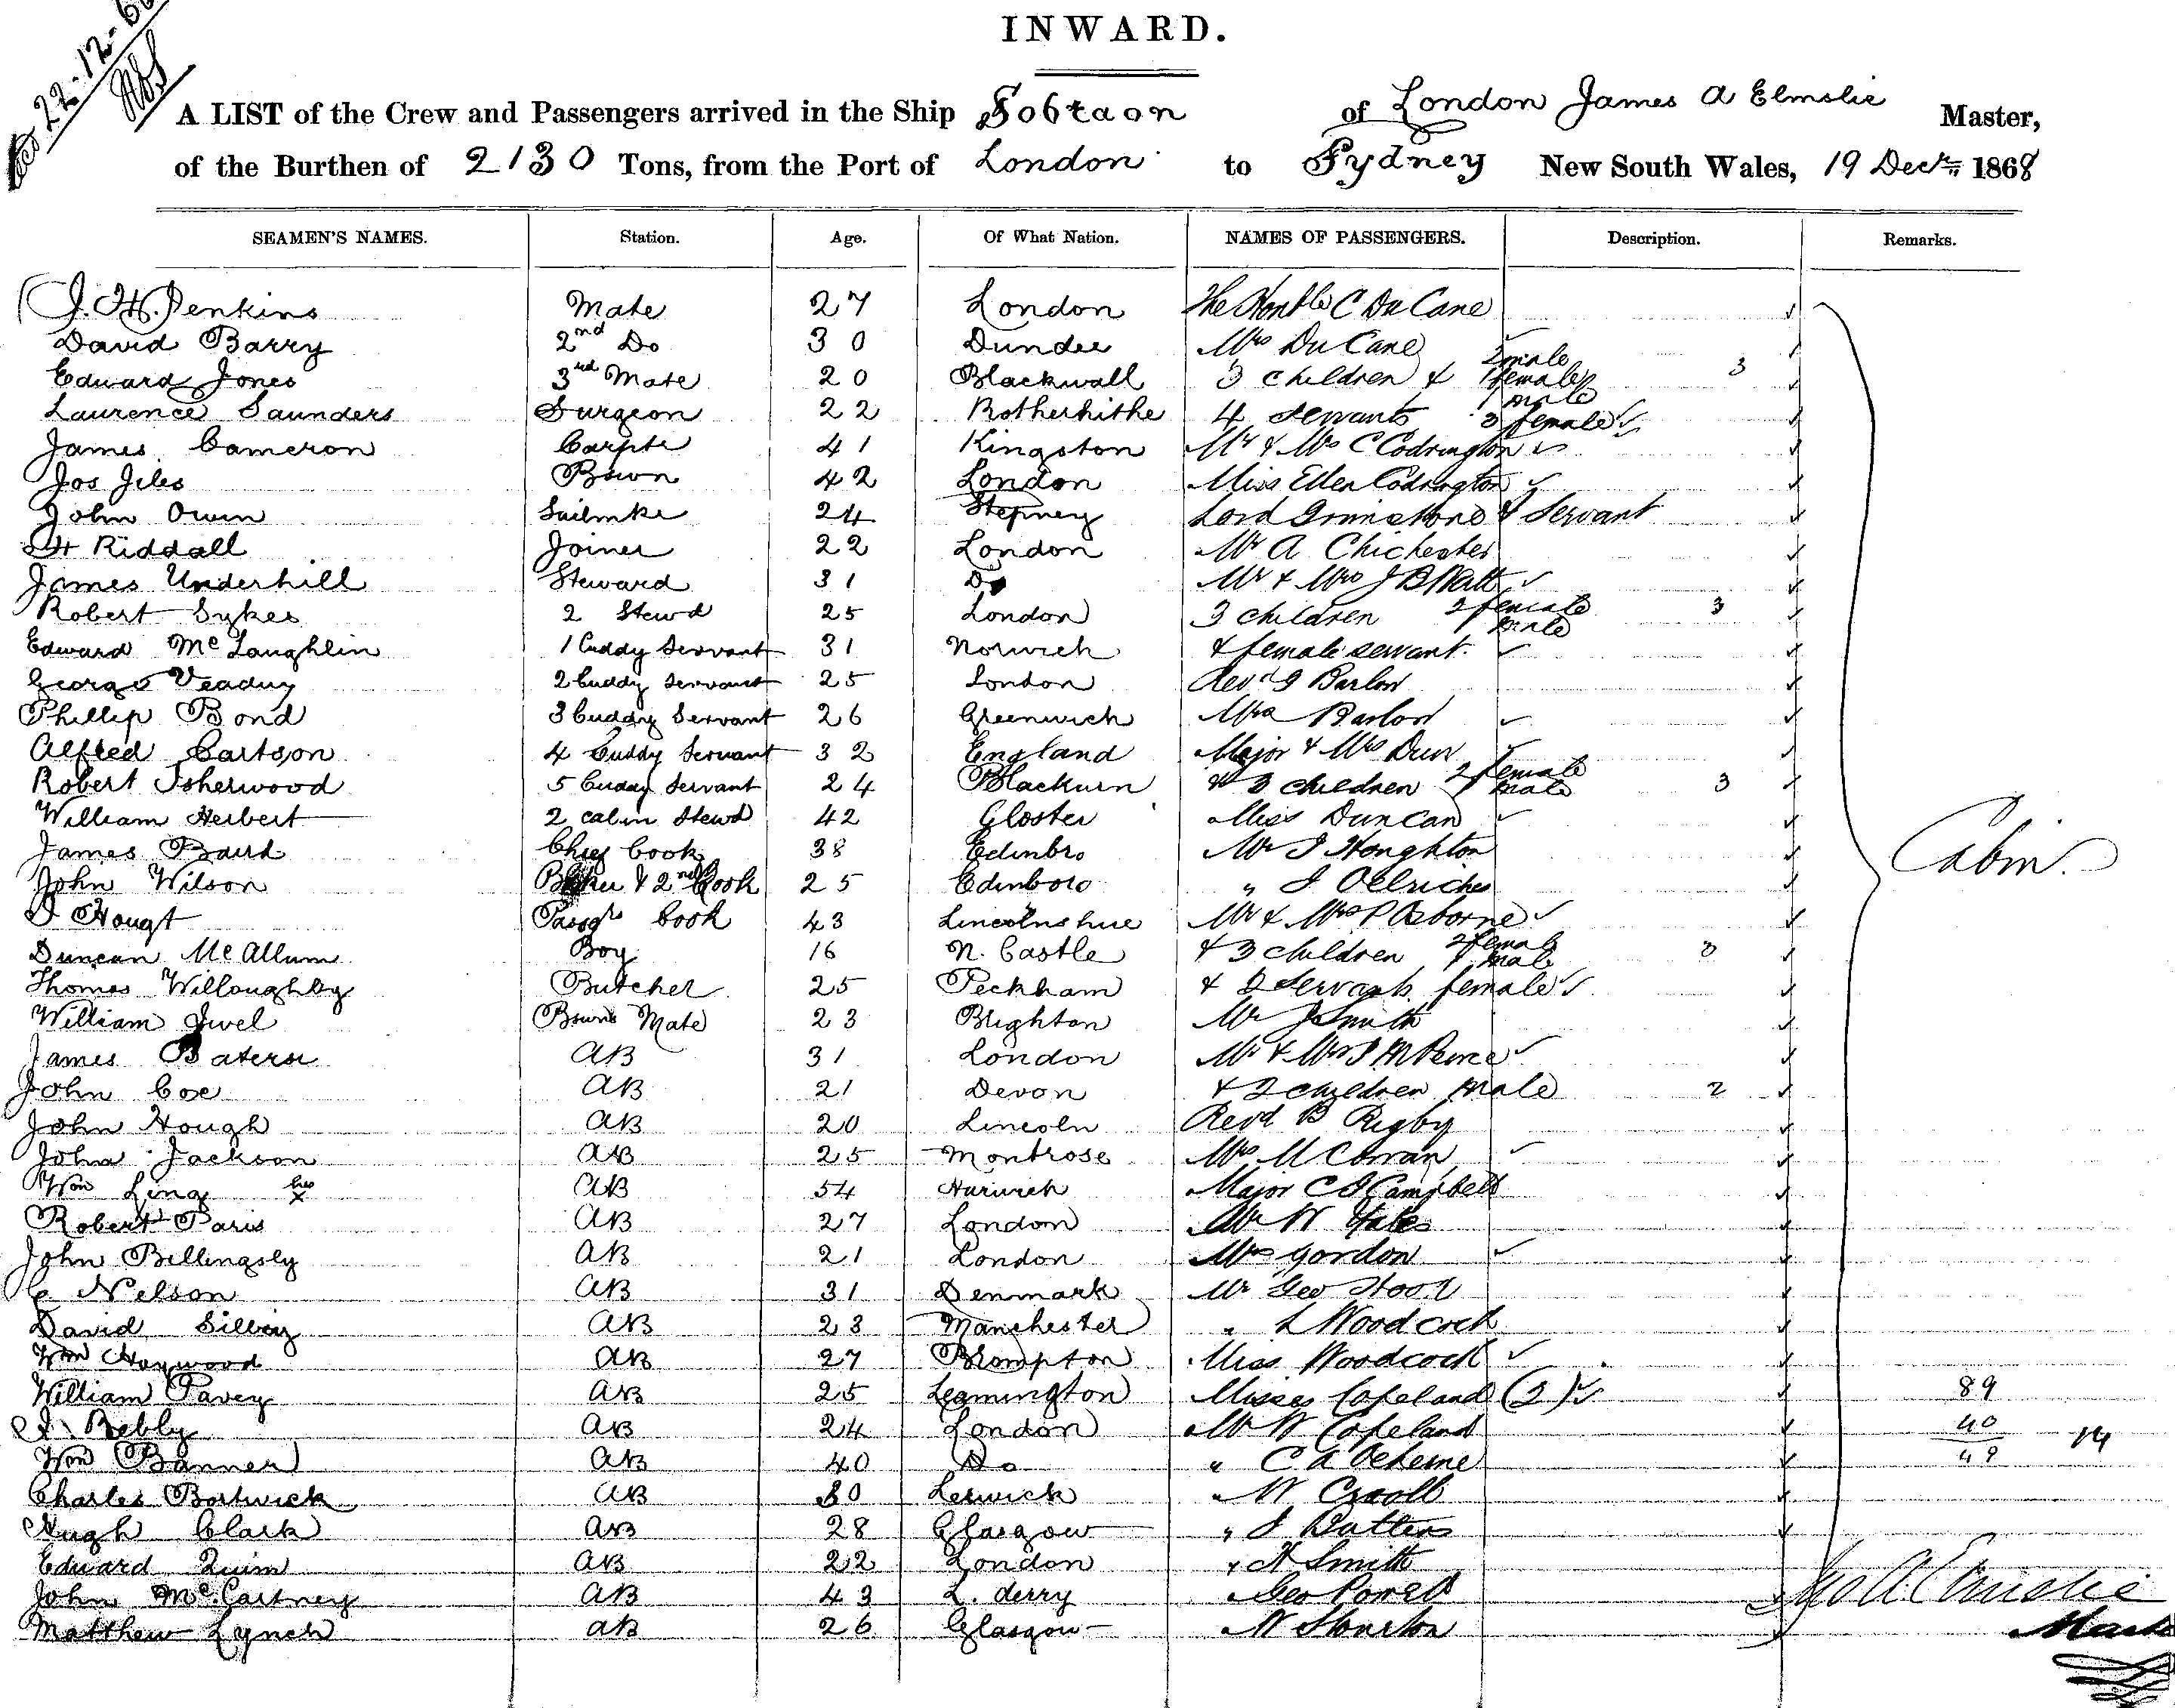 22-12-68
INWARD.
A LIST of the Crew and Passengers arrived in the Ship Sobraon of London James A Elmslie Master,
of the Burthen of 2130 Tons, from the Port of London to Sydney New South Wales, 19 Decr 1868
SEAMEN'S NAMES. Station. Age. Of What Nation. NAMES OF PASSENGERS. Description. Remarks.
J. H. Jenkins Mate 27 London The Honble C Du Cane
David Barry 2nd Do 30 Dundee Mrs Du Cane
Edward Jones 3rd Mate 20 Blackwall 3 children & 2 male 1 female 3
Laurence Saunders Surgeon 22 Rotherhithe 4 servants 1 male 3 female
James Cameron Carptr 41 Kingston Mr & Mrs C Codrington
Jos Jiles Bswn 42 London Miss Ellen Codrington
John Owen Sailmkr 24 Stepney Lord Grimstone & Servant
H Riddall Joiner 22 London Mr A Chichester
James Underhill Steward 31 Do Mr & Mrs J B Watt
Robert Sykes 2 Stewd 25 London 3 children 2 female 1 male 3
Edward McLaughlin 1 Cuddy Servant 31 Norwich & female servant
George 2 Cuddy Servant 25 London Revd Barlow
Phillip Bond 3 Cuddy Servant 26 Greenwich Mrs Barlow
Alfred Cartson 4 Cuddy Servant 32 England Major & Mrs
Robert Isherwood 5 Cuddy Servant 24 Blackurn & 3 children 2 female 1 male 3
William Herbert 2 cabin Stewd 42 Gloster Miss Duncan
James Baird Chief Cook 38 Edinbro Mr J Houghton
John Wilson Baker & 2nd Cook 25 Edinboro " J Oelriches
Cabin
J Hougt Passgrs Cook 43 Lincolnshire Mr & Mrs P Osborne
Duncan McAllum Boy 16 N. Castle & 3 children 2 female 1 male 3
Thomas Willoughby Butcher 25 Peckham & 2 Servants female
William Jwel Bswns Mate 23 Brighton Mr J Smith
James AB 31 London Mr & Mrs J M Peirce
John Coe AB 21 Devon & 2 children male 2
John Hough AB 20 Lincoln Revd B Rigby
John Jackson AB 25 Montrose Mrs M Cowan
Wm Ling his x AB 54 Harwich Major C J Campbell
Robert Paris AB 27 London Mr W Yates
John Billingsly AB 21 London Mrs Gordon
C Nelson AB 31 Denmark Mr Geo Hood
David Silley AB 23 Manchester " L Woodcock
Wm Haywood AB 27 Brompton Miss Woodcock
William Pavey AB 25 Leamington Misses Copeland (2) 89
J Bebbly AB 24 London Mr W Copeland 40
Wm Banner AB 40 Do " C A 49 14
Charles Bortwick AB 30 Lerwick " W Croll
Hugh Clark AB 28 Glasgow " J
Edward Quin AB 22 London " H Smith
John McCartney AB 43 L. derry " Geo Powell
Jas A Elmslie
Matthew Lynch AB 26 Glasgow " W Stourton
Master